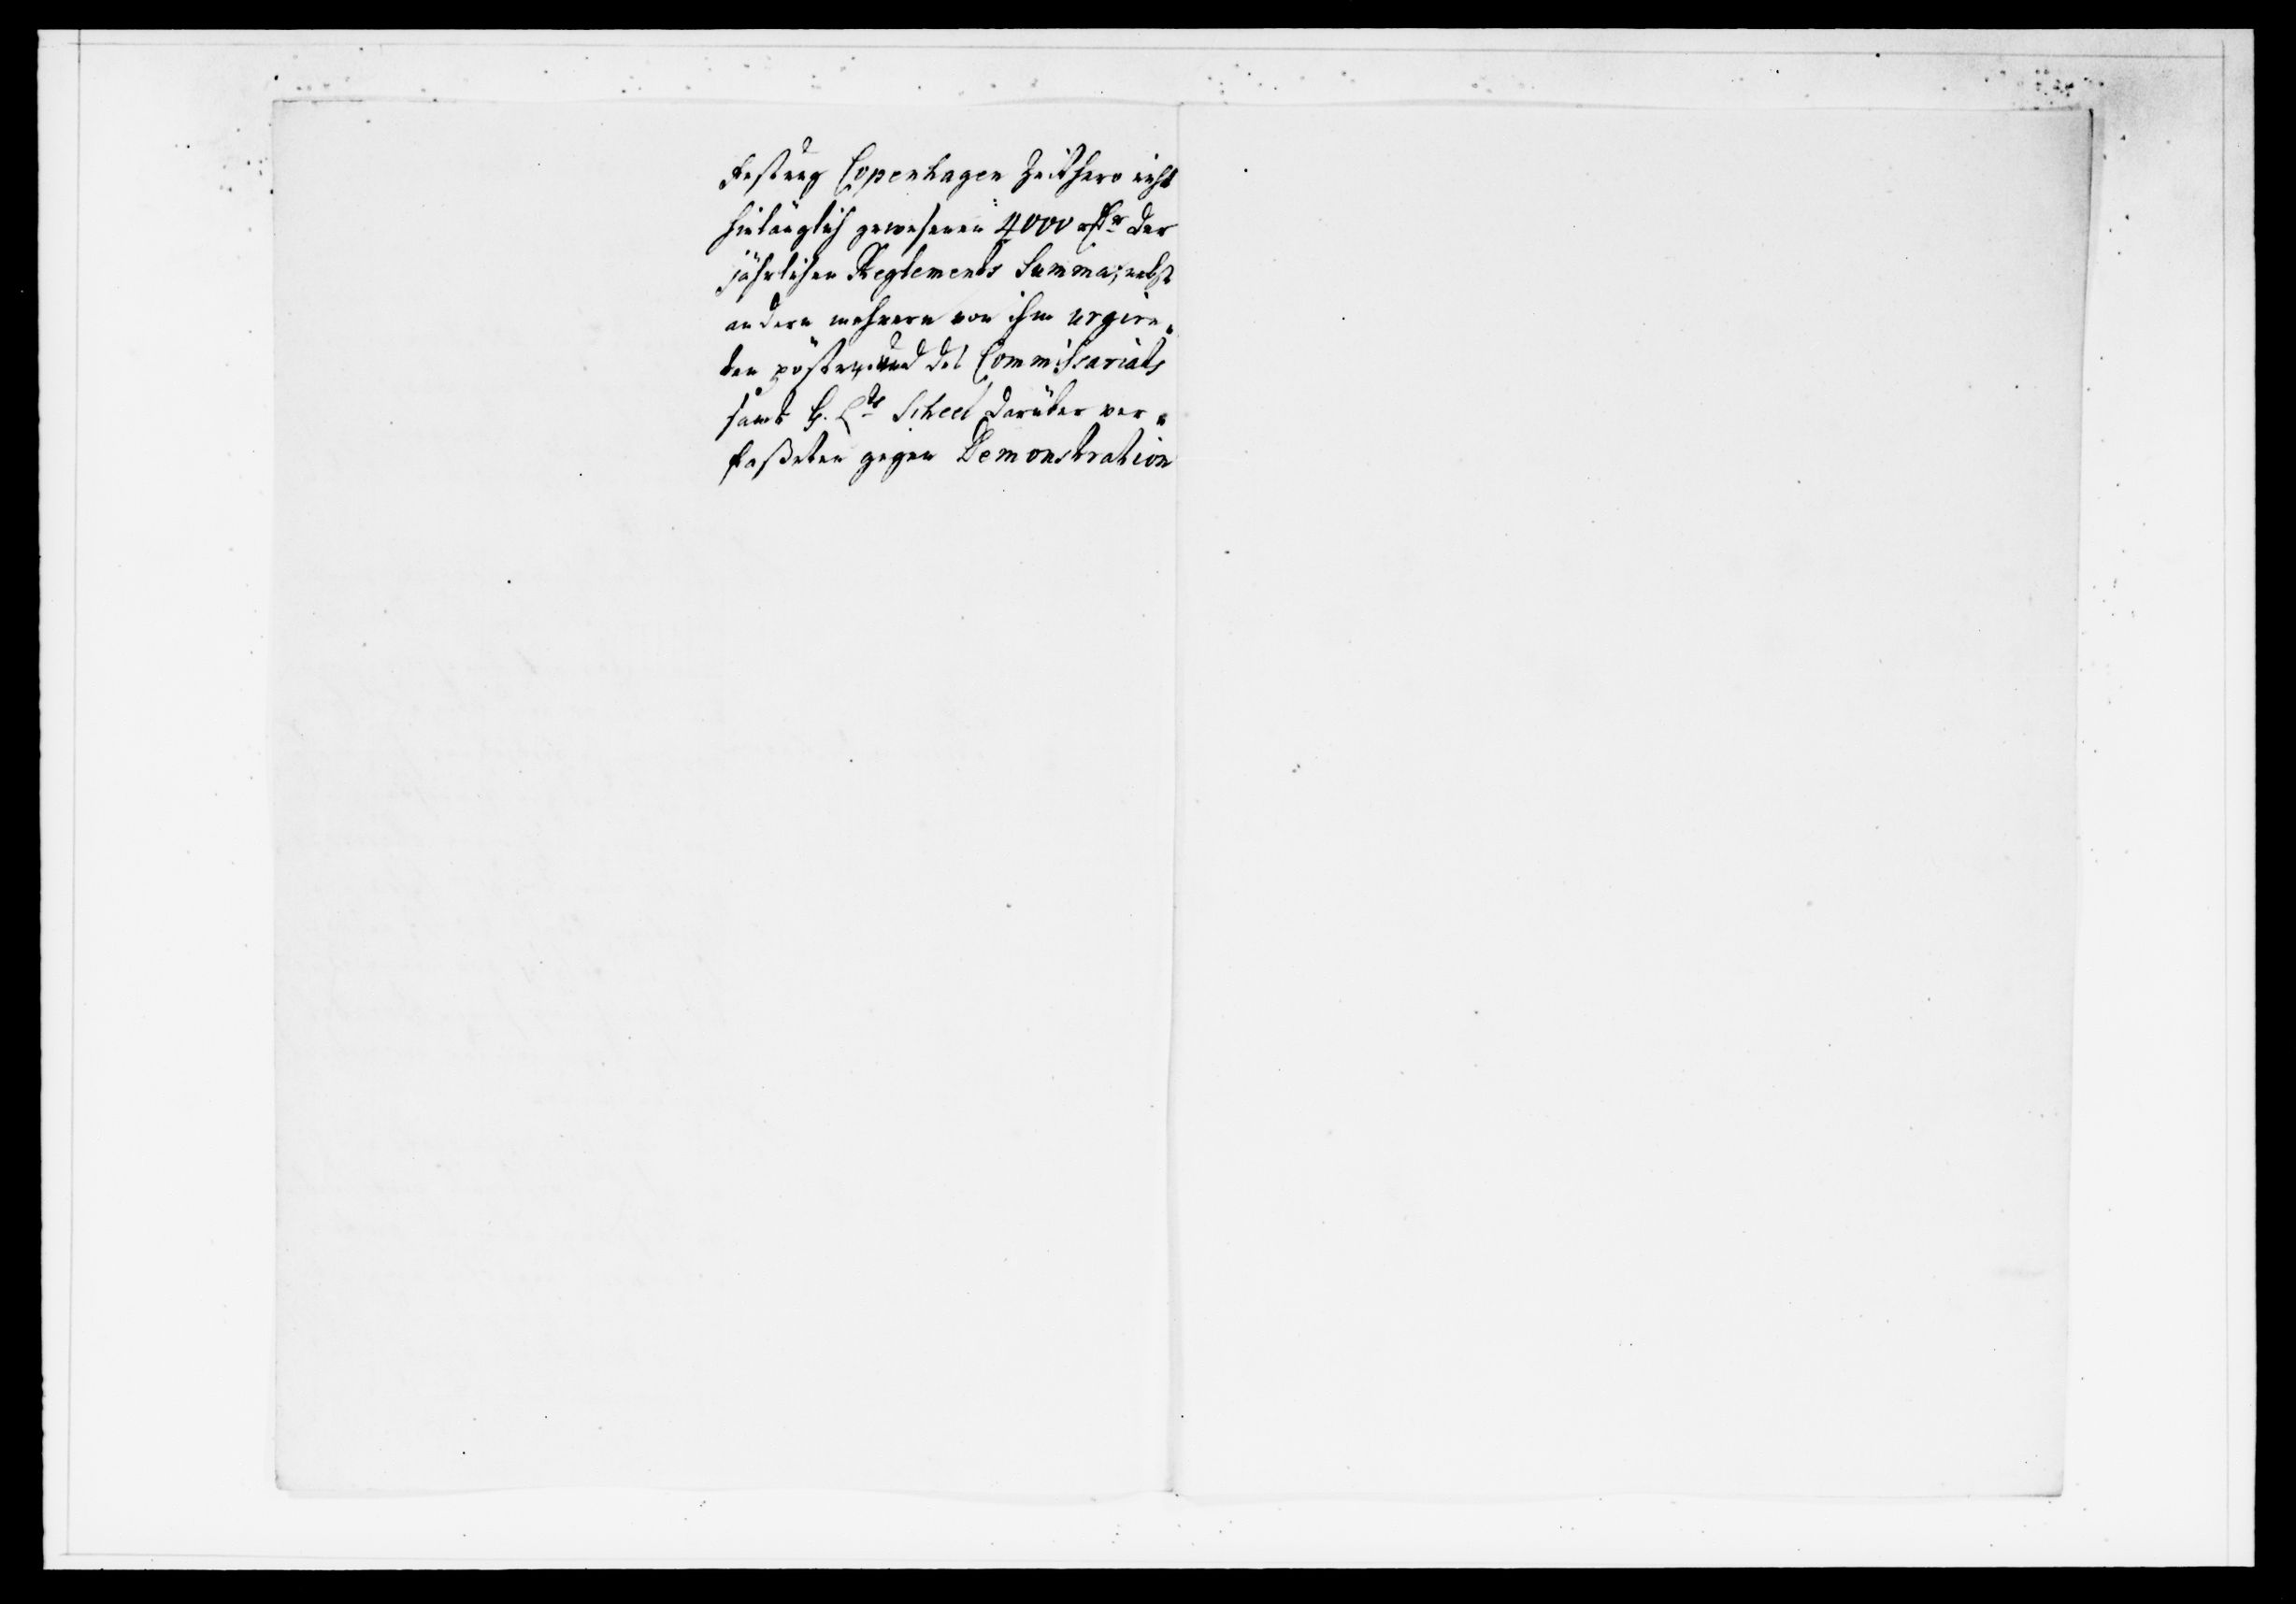 Festung Copenhagen Zeithero nicht
hinlänglich gewesenen 4000 Rthlr der
jährlichen Reglements Summa, nebst
andern mehrern von ihm urgire„
ten pösten, und des Commissariats
samt G. Lts Scheel darüber ver„
faßeten gegen Demonstration